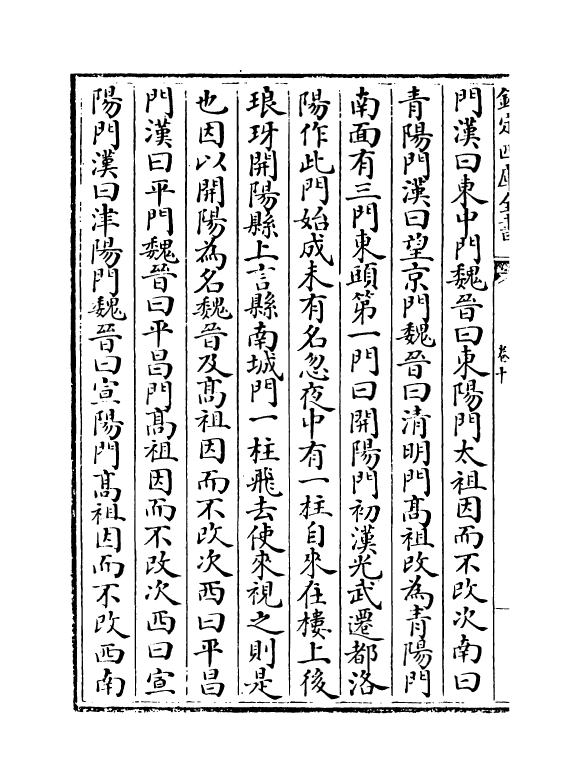 欽定四庫全書
卷十
門漢曰東中門魏晉曰東陽門太祖因而不改次南曰
青陽門漢曰望京門魏晉曰清明門髙祖改為青陽門
南面有三門東頭第一門曰開陽門初漢光武遷都洛
陽作此門始成未有名忽夜中有一柱自來在樓上後
琅玡開陽縣上言縣南城門一柱飛去使來視之則是
也因以開陽為名魏晉及髙祖因而不改次西曰平昌
門漢曰平門魏晉曰平昌門髙祖因而不改次西曰宣
陽門漢曰津陽門魏晉曰宣陽門髙祖因而不改西南